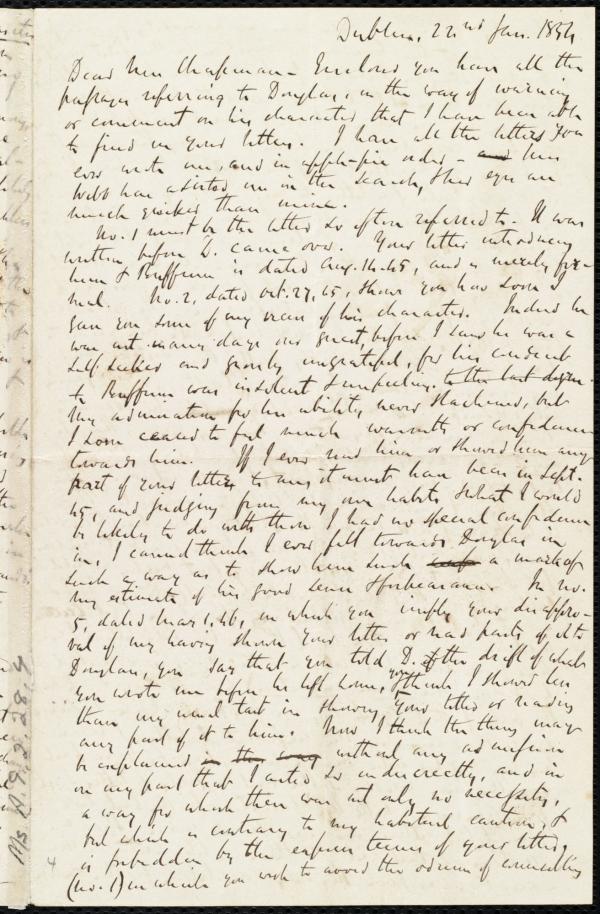 Dublin, 22nd Jan. 1854
Dear Mrs Chapman - Enclosed you have all the
passages referring to Douglas, in the way of warning
or comment on his character that I have been able
to find in your letters. I have all the letters you
ever wrote me, and in apple-pie order - and Miss
Webb have assisted me in the search, their eyes are
much quicker than mine.
No. 1 must be the letter so often referred to. It was
written before D. came over. Your letter introducing
him & Buffum is dated Aug. 16. 45, and is merely for-
mal. No. 2, dated Oct. 27, 45, shows you how soon I
gave you some of my views of his character. Indeed he
was not many days our guest, before I saw he was a
self-seeker and grossly ungrateful, for his conduct
to Buffum was insolent & unfeeling to the last degree.
My admiration for his ability never slackened, but
I soon ceased to feel much warmth or confidence
towards him. If I ever read him or showed him any
part of your letters to me, it must have been in Sept.
45, and judging from my own habits & what I would
be likely to do with those I had no special confidence
in, I cannot think I ever felt towards Douglas in
such a way as to show him such a mark of
my estimate of his good sense & forbearance. In no.
5, dated Mar 1, 46, in which you imply your disappro-
val of my having shown your letter or read parts of it to
Douglas, you say that you told D. of the drift of what
you wrote me before he left home, & you think I showed less
than my usual tact in showing your letter or reading
any part of it to him. Now I think the thing may
be explained in the way without any admission
on my part that I acted so indiscreetly, and in
a way for which there was not only no necessity,
but which is contrary to my habitual caution, &
is forbidden by the express terms of your letter,
(No. 1) in which you wish to avoid the odium of concealing
4
Ms A.9.2.28.4